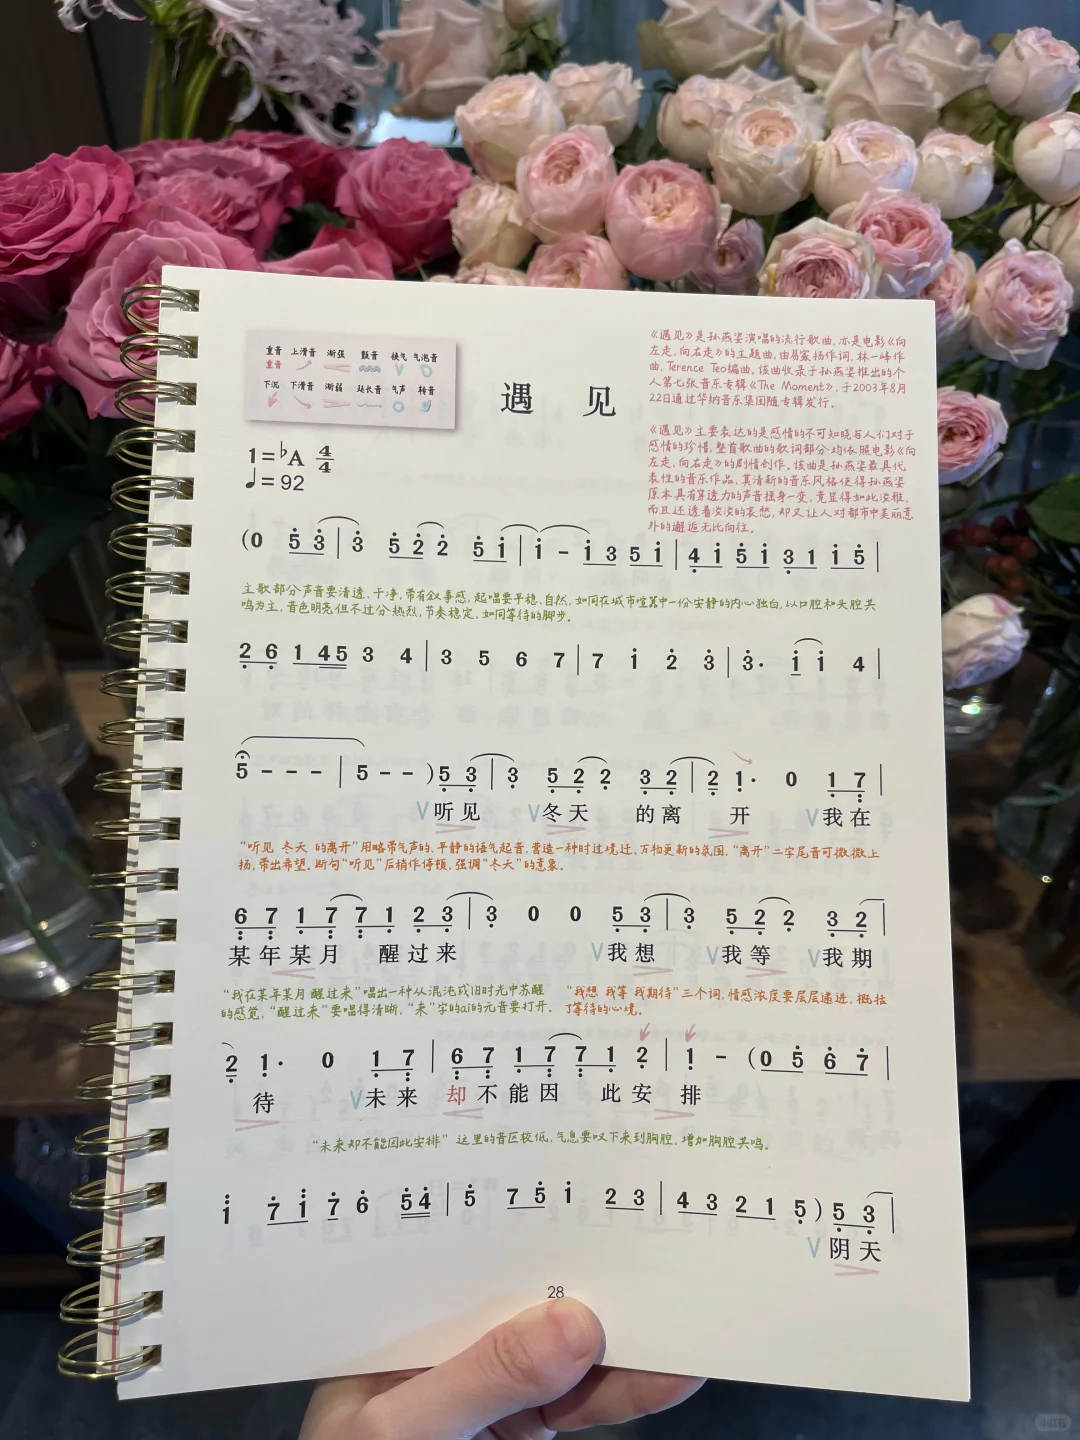 重音 上滑音 渐强 颤音 换气 气泡音
重音
下沉 下滑音 渐弱 延长音 气声 转音
遇 见
《遇见》是孙燕姿演唱的流行歌曲,亦是电影《向
左走,向右走》的主题曲,由易家扬作词,林一峰作
曲,Terence Teo编曲。该曲收录于孙燕姿推出的个
人第七张音乐专辑《The Moment》,于2003年8月
22日通过华纳音乐集团随专辑发行。
《遇见》主要表达的是感情的不可知晓与人们对于
感情的珍惜,整首歌曲的歌词部分均依照电影《向
左走,向右走》的剧情创作。该曲是孙燕姿最具代
表性的音乐作品,其清新的音乐风格使得孙燕姿
原本具有穿透力的声音摇身一变,竟显得如此淡雅,
而且还透着淡淡的哀愁,却又让人对都市中美丽意
外的邂逅无比向往。
1=♭A 4/4
♩=92
(0 5 3 | 3 5 2 2 5 1 | 1 - 1 3 5 1 | 4 1 5 1 3 1 1 5 |
主歌部分声音要清透、干净,带有叙事感,起唱要平稳、自然,如同在城市喧嚣中一份安静的内心独白,以口腔和头腔共
鸣为主,音色明亮但不过分热烈,节奏稳定,如同等待的脚步。
2 6 1 4 5 3 4 | 3 5 6 7 | 7 1 2 3 | 3· 1 1 4 |
5 - - - | 5 - - ) 5 3 | 3 5 2 2 3 2 | 2 1· 0 1 7 |
V听见 V冬天 的离 开 V我在
“听见 冬天 的离开”用略带气声的、平静的语气起音,营造一种时过境迁、万物更新的氛围,“离开”二字尾音可微微上
扬,带出希望。断句“听见”后稍作停顿,强调“冬天”的意象。
6 7 1 7 7 1 2 3 | 3 0 0 5 3 | 3 5 2 2 3 2 |
某年某月 醒过来 V我想 V我等 V我期
“我在某年某月 醒过来”唱出一种从混沌或旧时光中苏醒
的感觉,“醒过来”要唱得清晰,“来”字的ai的元音要打开。
“我想 我等 我期待”三个词,情感浓度要层层递进,概括
了等待的心境。
2 1· 0 1 7 | 6 7 1 7 7 1 2 | 1 - (0 5 6 7 |
待 V未来 却不能因 此安 排
“未来却不能因此安排” 这里的音区较低,气息要叹下来到胸腔,增加胸腔共鸣。
1 7 1 7 6 5 4 | 5 7 5 1 2 3 | 4 3 2 1 5 ) 5 3 |
V阴天
28